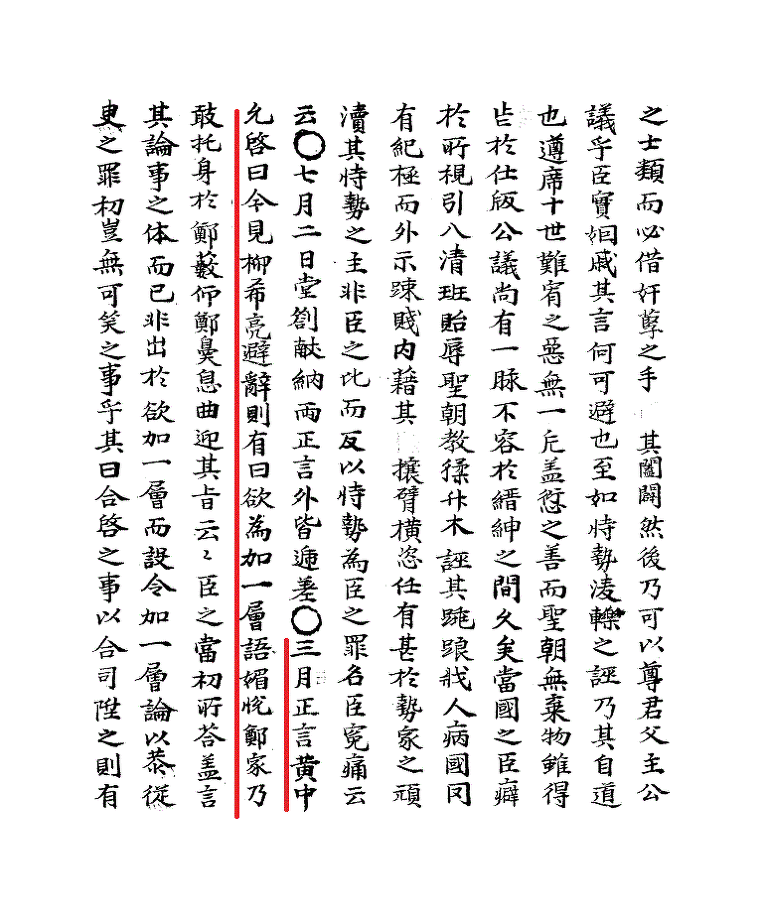 之士類而必借奸孽之手 其闔闢然後乃可以尊君父主公
議乎臣實姻戚其言何可避也至如恃勢凌轢之誣乃其自道
也遵席十世難宥之惡無一疪盖愆之善而聖朝無棄物雖得
齿於仕版公議尚有一脉不容於縉紳之間久矣當國之臣癖
於所視引八清班貽辱聖朝教猱升木誣其踪跟戕人病國罔
有紀極而外示踈賤内藉其 攘臂橫恣任有甚於勢家之頑
瀆其恃勢之主非臣之比而反以恃勢為臣之罪名臣寃痛云
云○七月二日堂劄献納両正言外皆遞差○三月正言黄中
允啓曰今見柳希亮避辭則有曰欲為加一層語媚悅鄭家乃
敢托身於鄭薮仰鄭鼻息曲迎其旨云〻臣之當初所答盖言
其論事之体而已非出於欲加一層而設令加一層論以恭從
吏之罪初豈無可笑之事乎其曰合啓之事以合司陞之則有